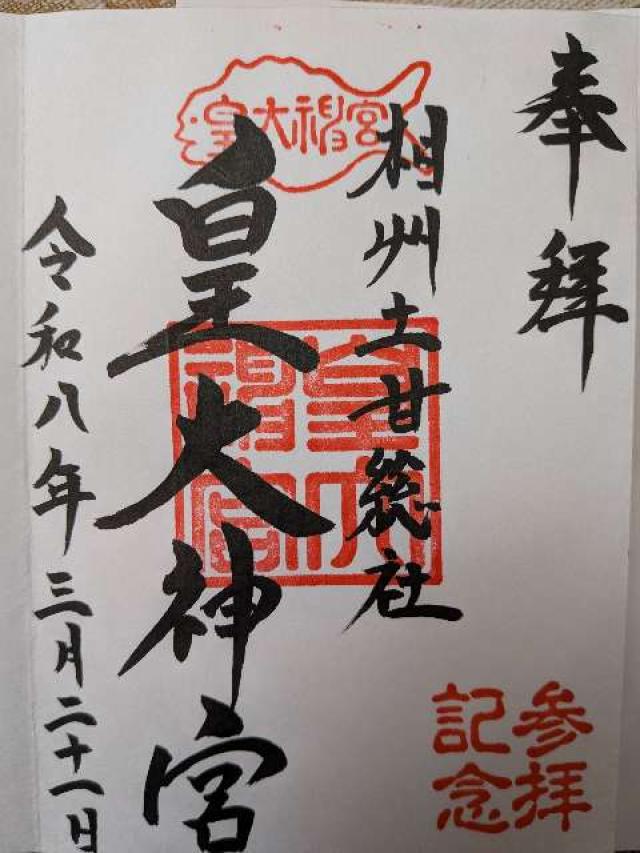 奉拝
相州土甘総社
皇大神宮
令和八年三月二十一日
皇大神宮
皇大神宮
参拝
記念